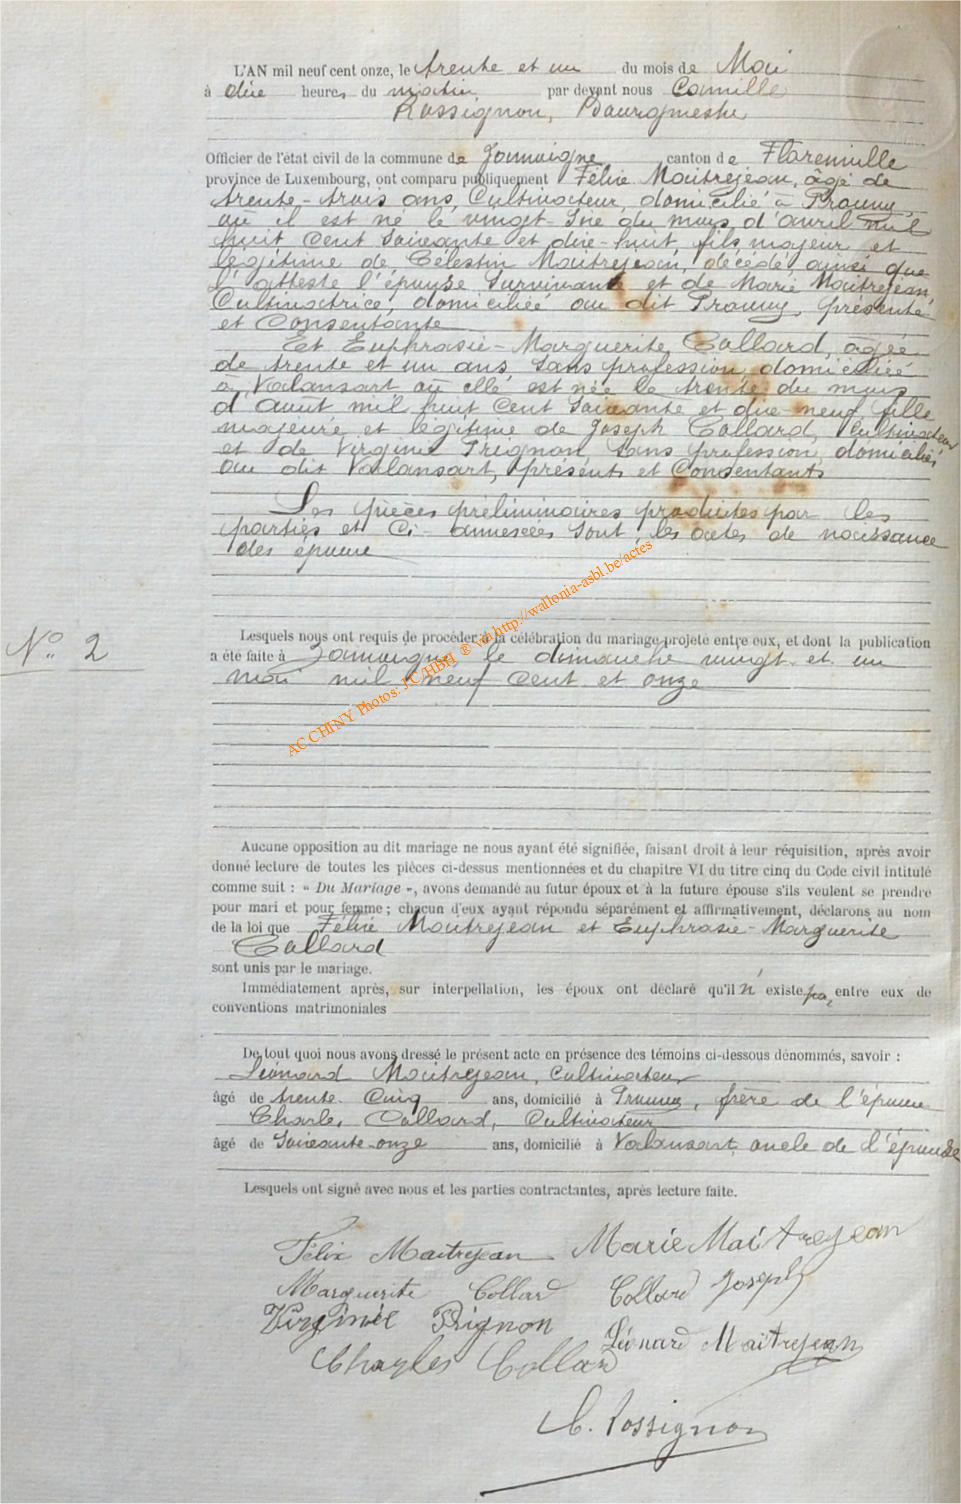 L'AN mil neuf cent onze, le trente et un du mois de Mai
à dix heures du matin par devant nous Camille
Rossignon, Bourgmestre
Officier de l'état civil de la commune de Jamoigne canton de Florenville
province de Luxembourg, ont comparu publiquement Félix Maitrejean, âgé de
trente-trois ans, Cultivateur, domicilié à Prouvy,
où il est né le vingt-six du mois d'avril mil
huit cent soixante et dix-huit, fils majeur et
légitime de Célestin Maitrejean, décédé ainsi que
l'atteste l'épouse survivante et de Marie Maitrejean,
Cultivatrice, domiciliée au dit Prouvy, présente
et Consentante
Et Euphrasie-Marguerite Collard, âgée
de trente et un ans, sans profession, domiciliée
à Valansart où elle est née le trente du mois
d'août mil huit cent soixante et dix-neuf, fille
majeure et légitime de Joseph Collard, Cultivateur
et de Virginie Prignon, sans profession, domiciliés
au dit Valansart, présents et Consentants
Les pièces préliminaires produites par les
parties et Ci-annexées sont, les actes de naissance
des époux
No 2
Lesquels nous ont requis de procéder à la célébration du mariage projeté entre eux, et dont la publication
a été faite à Jamoigne le dimanche vingt et un
mai mil neuf cent et onze
AC CHINY Photos: J.C/HBH ® via http://wallonia-asbl.be/actes
Aucune opposition au dit mariage ne nous ayant été signifiée, faisant droit à leur réquisition, après avoir
donné lecture de toutes les pièces ci-dessus mentionnées et du chapitre VI du titre cinq du Code civil intitulé
comme suit : « Du Mariage », avons demandé au futur époux et à la future épouse s'ils veulent se prendre
pour mari et pour femme ; chacun d'eux ayant répondu séparément et affirmativement, déclarons au nom
de la loi que Félix Maitrejean et Euphrasie-Marguerite
Collard
sont unis par le mariage.
Immédiatement après, sur interpellation, les époux ont déclaré qu'il n'existe pas entre eux de
conventions matrimoniales
De tout quoi nous avons dressé le présent acte en présence des témoins ci-dessous dénommés, savoir :
Léonard Maitrejean, Cultivateur
âgé de trente-cinq ans, domicilié à Prouvy, frère de l'époux
Charles Collard, Cultivateur
âgé de Soixante-onze ans, domicilié à Valansart, oncle de l'épouse
Lesquels ont signé avec nous et les parties contractantes, après lecture faite.
Félix Maitrejean Marie Maitrejean
Marguerite Collard Collard Joseph
Virginie Prignon Léonard Maitrejean
Charles Collard
C. Rossignon